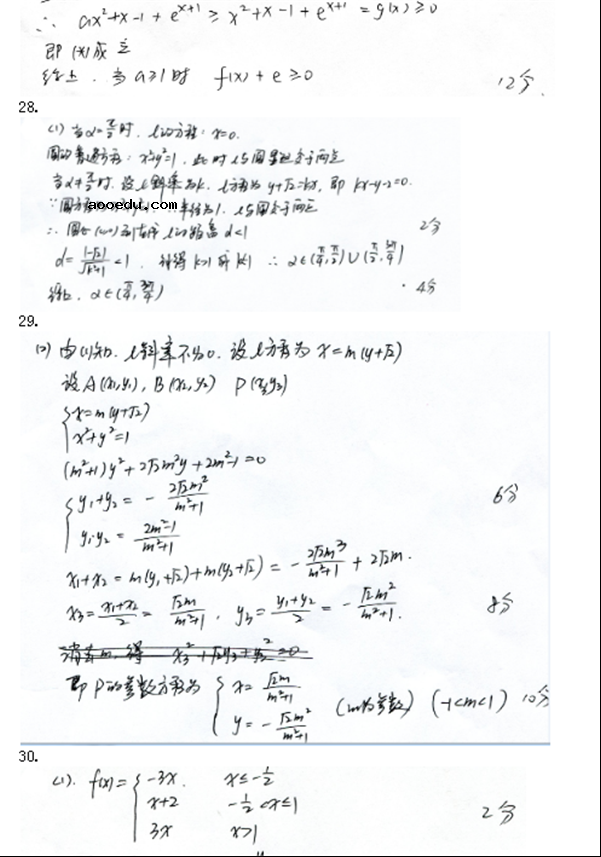 ∴ ax²+x-1+eˣ⁺¹ ≥ x²+x-1+eˣ⁺¹ = g(x) ≥ 0
即(*)成立
综上. 当a≥1时 f(x)+e≥0 12分.
28.
(1) 当α=π/2时. l的方程: x=0.
圆的普通方程: x²+y²=1. 此时l与圆 交于两点
当α≠π/2时. 设l斜率为k. l方程为y+√2=kx, 即kx-y-√2=0.
aooedu.com 半径为1. l与圆交于两点
∴ 圆心(0,0)到直线l的距离d<1 2分
d=|-√2|/√(k²+1)<1. 解得k>1或k<-1 ∴ α∈(π/4,π/2)∪(π/2,3π/4)
综上. α∈(π/4,3π/4) 4分
29.
(2) 由(1)知. l斜率不为0. 设l方程为x=m(y+√2)
设A(x₁,y₁), B(x₂,y₂) P(x₃,y₃)
{x=m(y+√2)
x²+y²=1
(m²+1)y²+2√2m²y+2m²-1=0
{y₁+y₂=-2√2m²/(m²+1) 6分
y₁y₂=(2m²-1)/(m²+1)
x₁+x₂=m(y₁+√2)+m(y₂+√2)=-2√2m³/(m²+1)+2√2m.
x₃=(x₁+x₂)/2=√2m/(m²+1), y₃=(y₁+y₂)/2=-√2m²/(m²+1). 8分
消去m, 得 x₃²+√2y₃+y₃²=0
即P的参数方程为 {x=√2m/(m²+1)
y=-√2m²/(m²+1) (m为参数) (-1<m<1) 10分
30.
(1). f(x)={-3x. x≤-1/2
x+2 -1/2<x≤1
3x x>1 2分